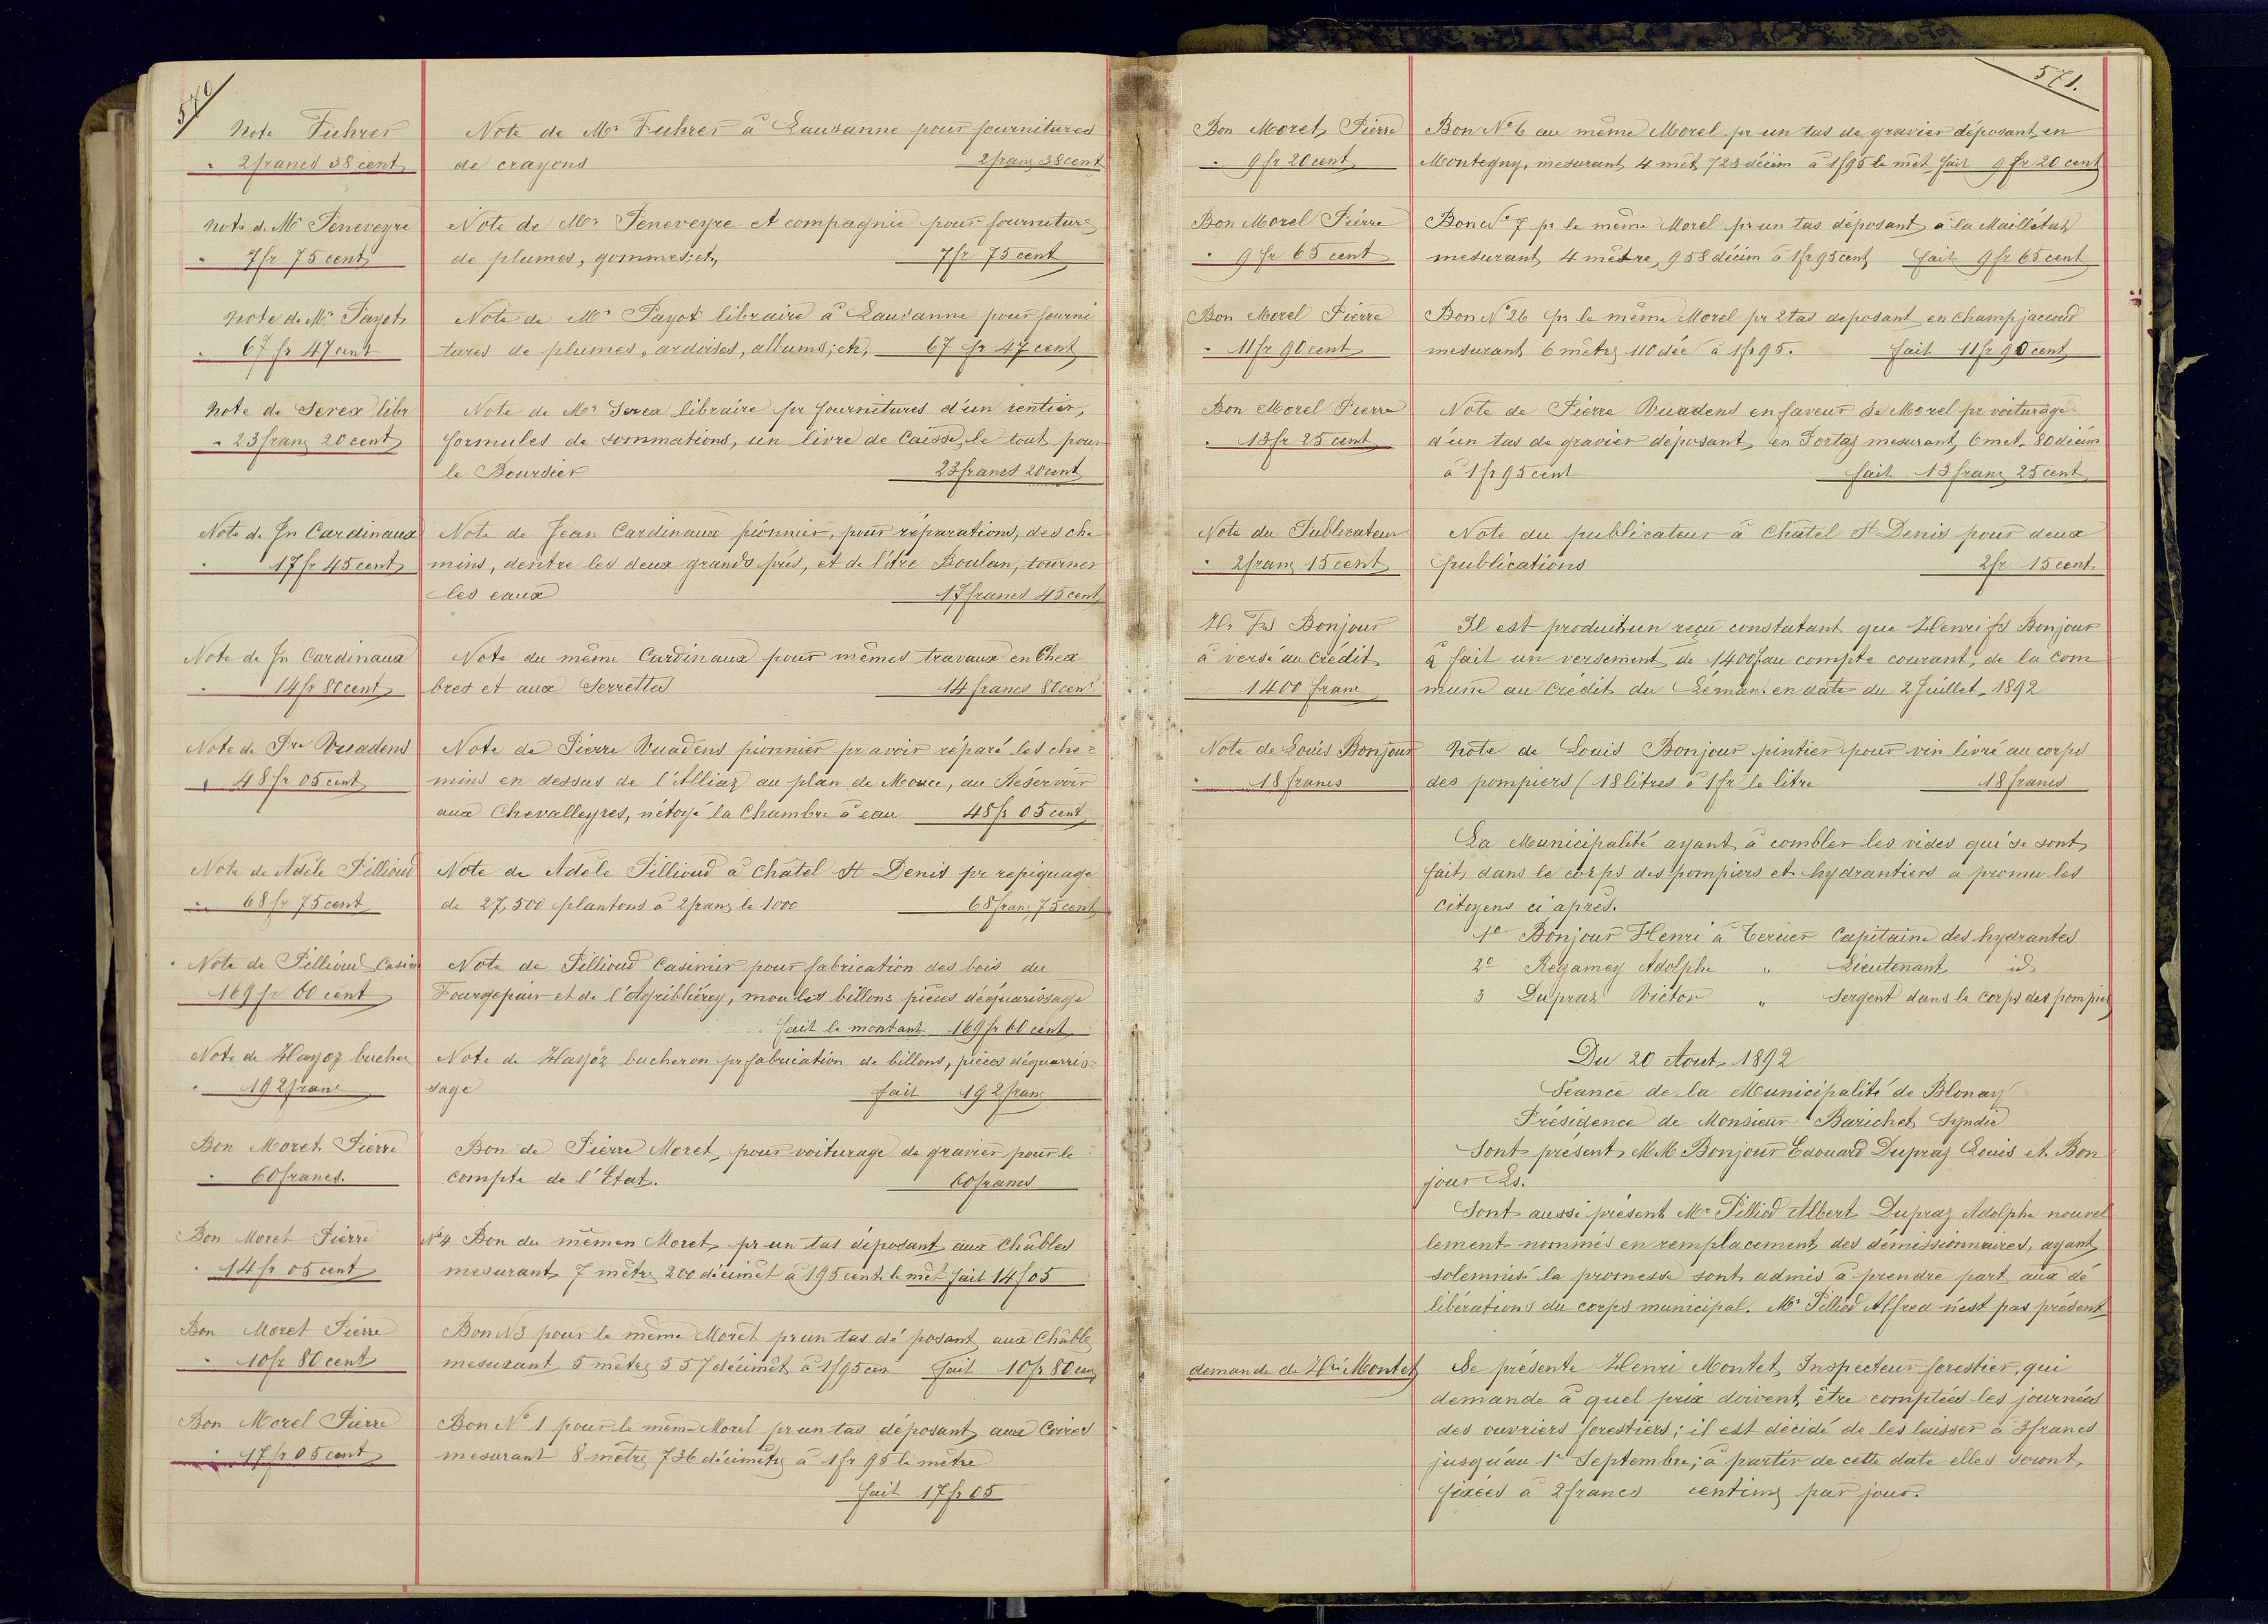 570
Note Fuhrer
" 2 francs 38 cent
Note de Mr Fuhrer à Lausanne pour fournitures
de crayons 2 franc 38 cent
note de Mr Peneveyre
" 7 fr 75 cent
Note de Mr Peneveyre et compagnie pour fourniture
de plumes, gommes; etc, 7 fr 75 cent
note de Mr Payot
" 67 fr 47 cent
Note de Mr Payot libraire à Lausanne pour fourni
tures de plumes, ardoises, albums; etc, 67 fr 47 cent
Note de Serex libr
" 23 franc 20 cent
Note de Mr Serex libraire pr fournitures d'un rentier,
formules de sommations, un livre de Caisse, le tout pour
le Boursier 23 francs 20 cent
Note de Jn Cardinaux
" 17 fr 45 cent
Note de Jean Cardinaux pionnier, pour réparations, des che
mins, dentre les deux grands prés, et de l'être Boulan, tourner
les eaux 17 francs 45 cent
Note de Jn Cardinaux
" 14 fr 80 cent
Note du même Cardinaux pour mêmes travaux en Chex
bres et aux Serrettes 14 francs 80 cent
Note de Pre Vuadens
" 48 fr 05 cent
Note de Pierre Vuadens pionnier pr avoir réparé les che=
mins en dessus de l'Alliaz au plan de Mouce, au Réservoir
aux Chevalleyres, nétoyé la Chambre à eau 48 fr 05 cent
Note de Adèle Pillioud
" 68 fr 75 cent
Note de Adèle Pillioud à Châtel St Denis pr repiquage
de 27,500 plantons à 2 franc le 1000 68 franc 75 cent
Note de Pillioud Casim
169 fr 60 cent
Note de Pillioud Casimir pour fabrication des bois du
Fourgepair et de l'Agribliérey, moules billons pièces d'équarissage
fait le montant 169 fr 60 cent
Note de Hayoz bucher
" 192 franc
Note de Hayoz bucheron pr fabrication de billons, pièces d'équarris=
sage fait 192 franc
Bon Moret Pierre
" 60 francs.
Bon de Pierre Moret, pour voiturage de gravier pour le
compte de l'Etat. 60 francs
Bon Moret Pierre
" 14 fr 05 cent
No 4 Bon du mêmen Moret, pr un tas déposant aux Châbles
mesurant 7 mètre 200 décimèt à 195 cent le mèt fait 14f05
Bon Moret Pierre
" 10 fr 80 cent
Bon N3 pour le même Moret pr un tas dé posant aux Châble
mesurant 5 mètre 557 décimèt à 1f95 cen fait 10 fr 80 cen
Bon Morel Pierre
" 17 fr 05 cent
Bon No 1 pour le même Morel pr un tas déposant aux Coires
mesurant 8 mètre 736 décimètre à 1 fr 95 le mètre
fait 17 fr 05
571.
Bon Moret Pierre
" 9 fr 20 cent
Bon No 6 au même Morel pr un tas de gravier déposant en
Montegny, mesurant 4 mèt 723 décim à 1f95 le mèt fait 9 fr 20 cent
Bon Morel Pierre
" 9 fr 65 cent
Bon No 7 pr le même Morel pr un tas déposant à la Maillétaz
mesurant 4 mètre, 958 décim à 1 fr 95 cent fait 9 fr 65 cent
Bon Morel Pierre
" 11 fr 90 cent
Bon No 26 pr le même Morel pr 2 tas deposant en Champ jaccoud
mesurant 6 mètre 110 déc à 1 fr 95. fait 11 fr 90 cent
Bon Morel Pierre
" 13 fr 25 cent
Note de Pierre Vuadens en faveur de Morel pr voiturage
d'un tas de gravier déposant en Portaz mesurant 6 met. 80 décim
à 1 fr 95 cent fait 13 franc 25 cent
Note du Publicateur
" 2 franc 15 cent
Note du publicateur à Chatel St Denis pour deux
publications 2 fr 15 cent.
Hr Fs Bonjour
à versé au Crédit
1400 franc
Il est produit un reçu constatant que Henri fs Bonjour
à fait un versement de 1400f au compte courant, de la Com
mune au Crédit du Léman en date du 2 Juillet 1892
Note de Louis Bonjour
" 18 francs
Note de Louis Bonjour pintier pour vin livré au corps
des pompiers (18 litres à 1 fr le litre 18 francs
La Municipalité ayant à combler les vides qui se sont
faits dans le corps des pompiers et hydrantiers a promu les
citoyens ci après.
1o Bonjour Henri à Tercier Capitaine des hydrantes
2o Regamey Adolphe " Lieutenant id
3 Dupraz Victor " Sergent dans le corps des pompiers
Du 20 Aout 1892
Séance de la Municipalité de Blonay
Présidence de Monsieur Barichet Syndic
Sont présent MM Bonjour Edouard Dupraz Louis et Bon
jour Ls.
Sont aussi présent Mr Pilliod Albert Dupraz Adolphe nouvel
lement nommés en remplacement des démissionnaires, ayant
solemnisé la promesse sont admis à prendre part aux dé
libérations du corps municipal. Mr Pilliod Alfred n'est pas présent
demande de Hri Montet
Se présente Henri Montet Inspecteur forestier, qui
demande à quel prix doivent être comptées les journées
des ouvriers forestiers; il est décidé de les laisser à 3 francs
jusqu'au 1er Septembre; à partir de cette date elles seront
fixées à 2 francs centimes par jour.